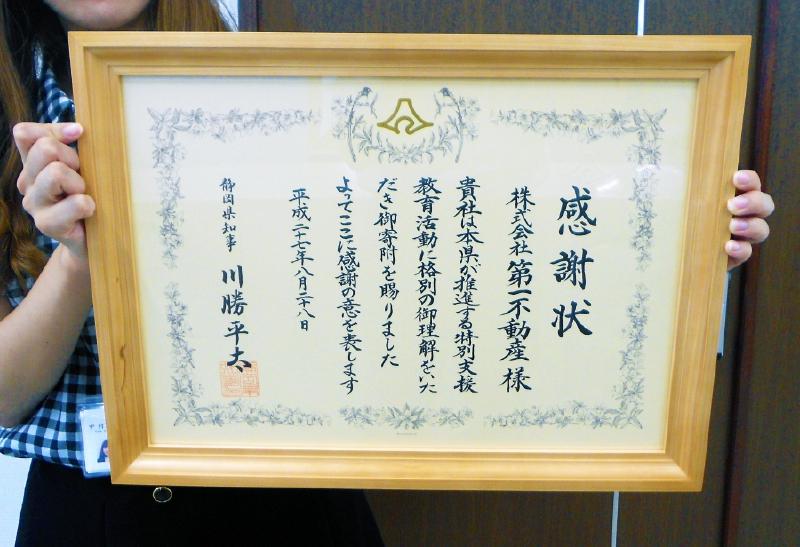 感謝状
株式会社 第一不動産 様
貴社は本県が推進する特別支援
教育活動に格別の御理解をいた
だき御寄附を賜りました
よってここに感謝の意を表します
平成二十七年八月二十八日
静岡県知事 川勝平太